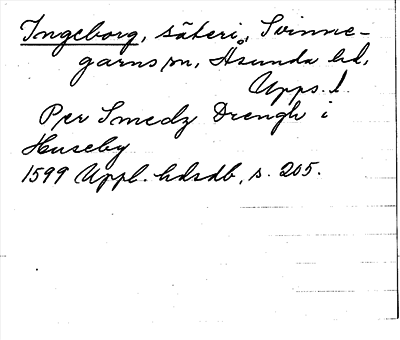 Ingeborg, säteri, Svinne-
garns sn, Åsunda hd,
Upps. l.
Per Smedz Drengh i
Huseby
1599 Uppl. hdsdb, s. 205.